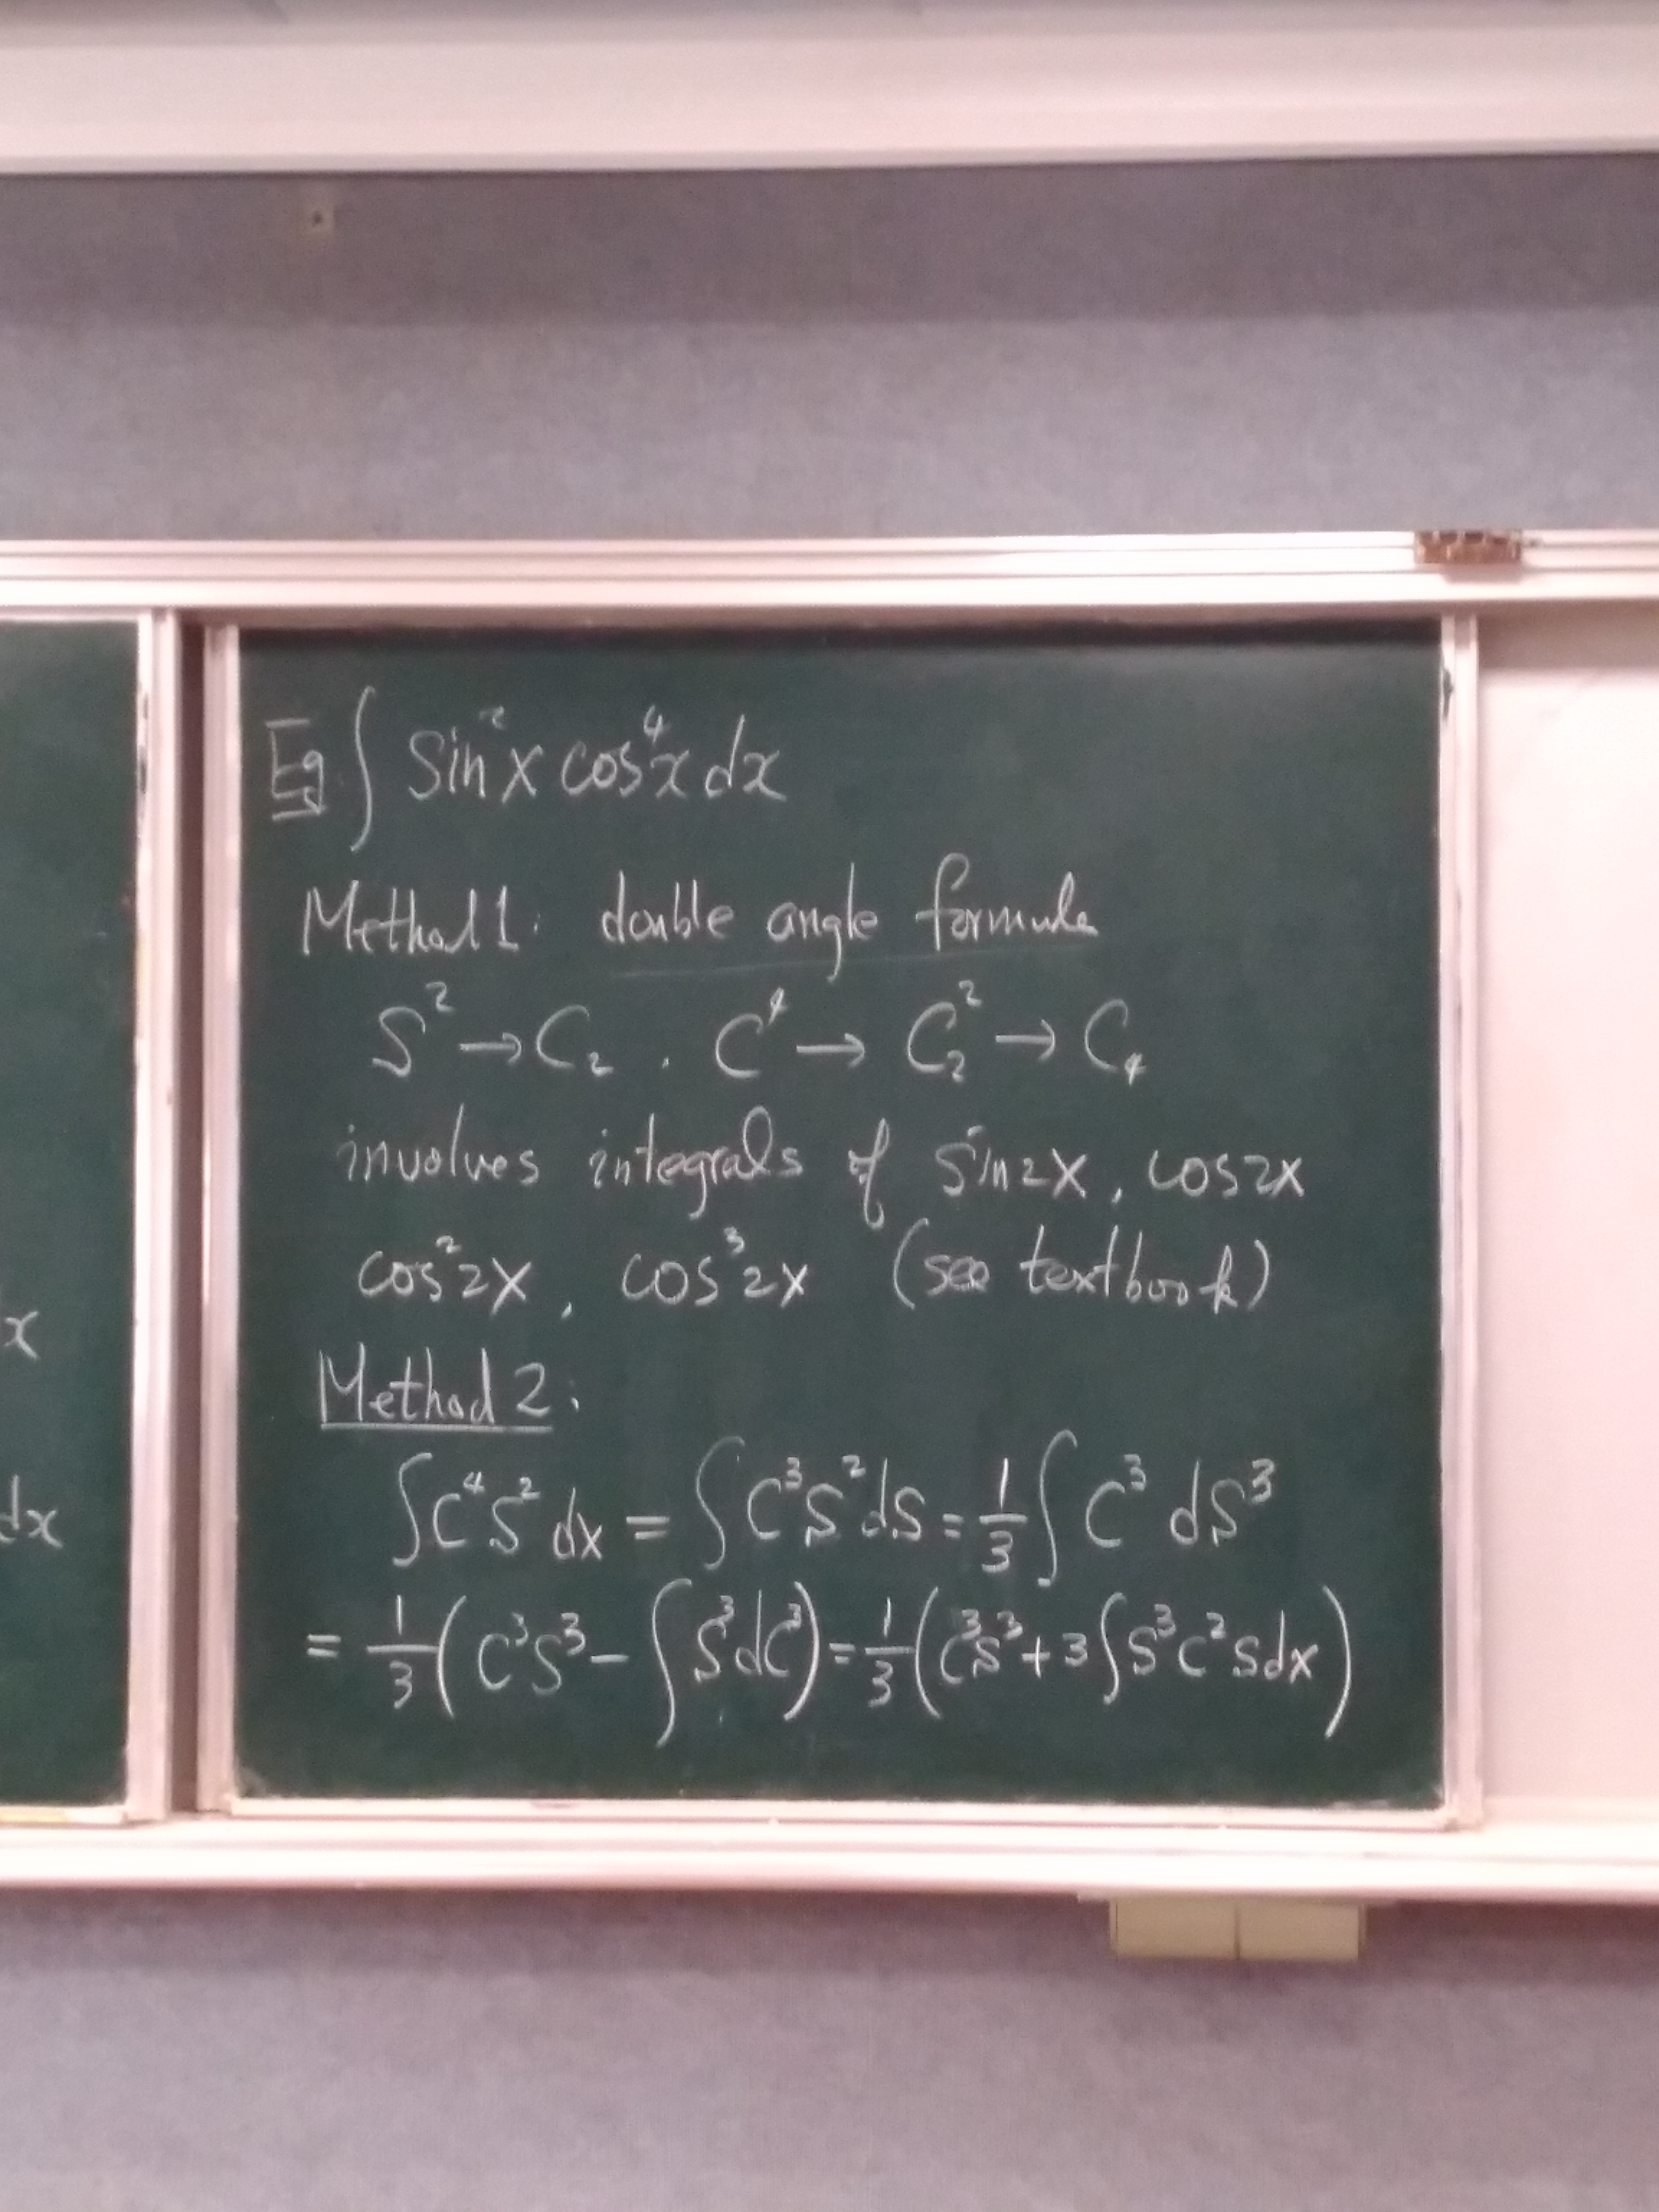 Eg. ∫ sin²x cos⁴x dx
Method 1: double angle formula
S² → C₂ . C⁴ → C₂² → C₄
involves integrals of sin2x, cos2x
cos²2x, cos³2x (see textbook)
Method 2:
∫C⁴S² dx = ∫C³S²dS = 1/3 ∫ C³ dS³
= 1/3 (C³S³ - ∫S³dC³) = 1/3 (C³S³ + 3∫S³C²Sdx)
x
dx